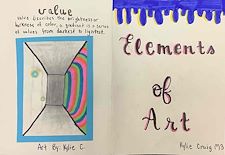 value
value describes the brightness or
darkness of color, a gradient is a series
of values from darkest to lightest.
Art By: Kylie C.
Elements
of
Art
Kylie Craig M3